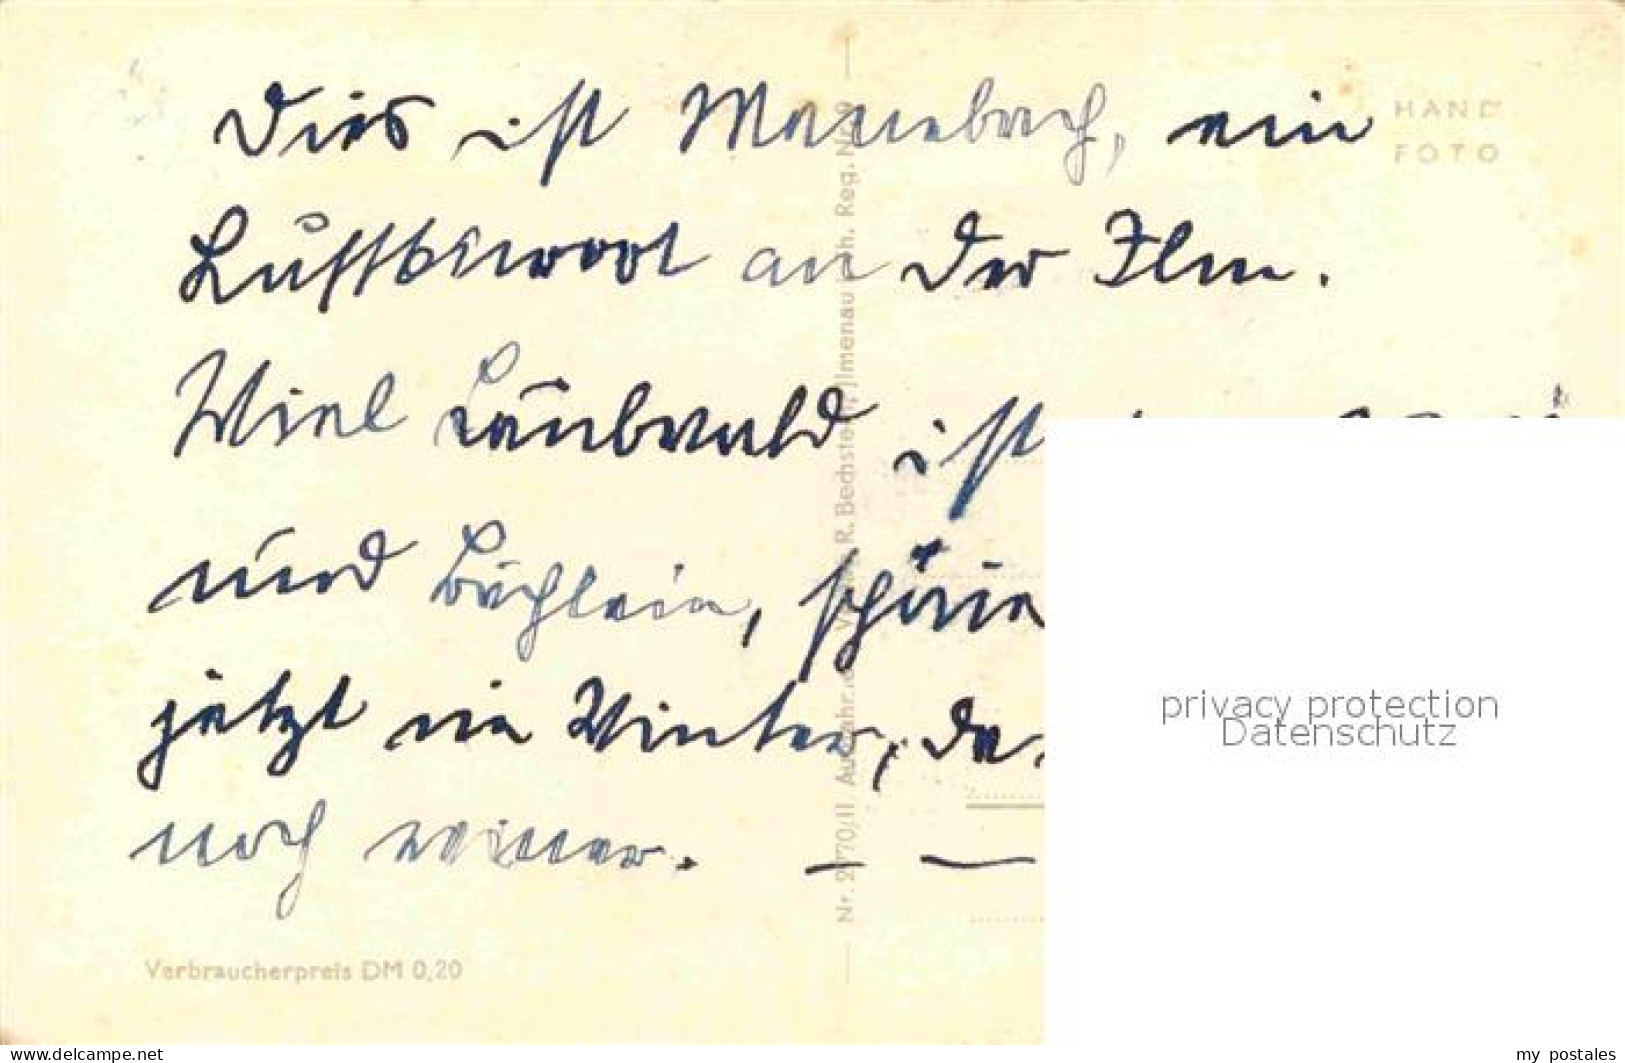 Dies ist Manebach, ein
Luftkurort an der Ilm.
Viel Laubwald ist
und Bächlein, schöne
jetzt im Winter, da
noch immer. — —
HAND
FOTO
Nr. 2770/II Aufnahme Verlag R. Bechstein, Ilmenau Reg. Nr.
Verbraucherpreis DM 0,20
privacy protection
Datenschutz
https://www.delcampe.net
my_postales